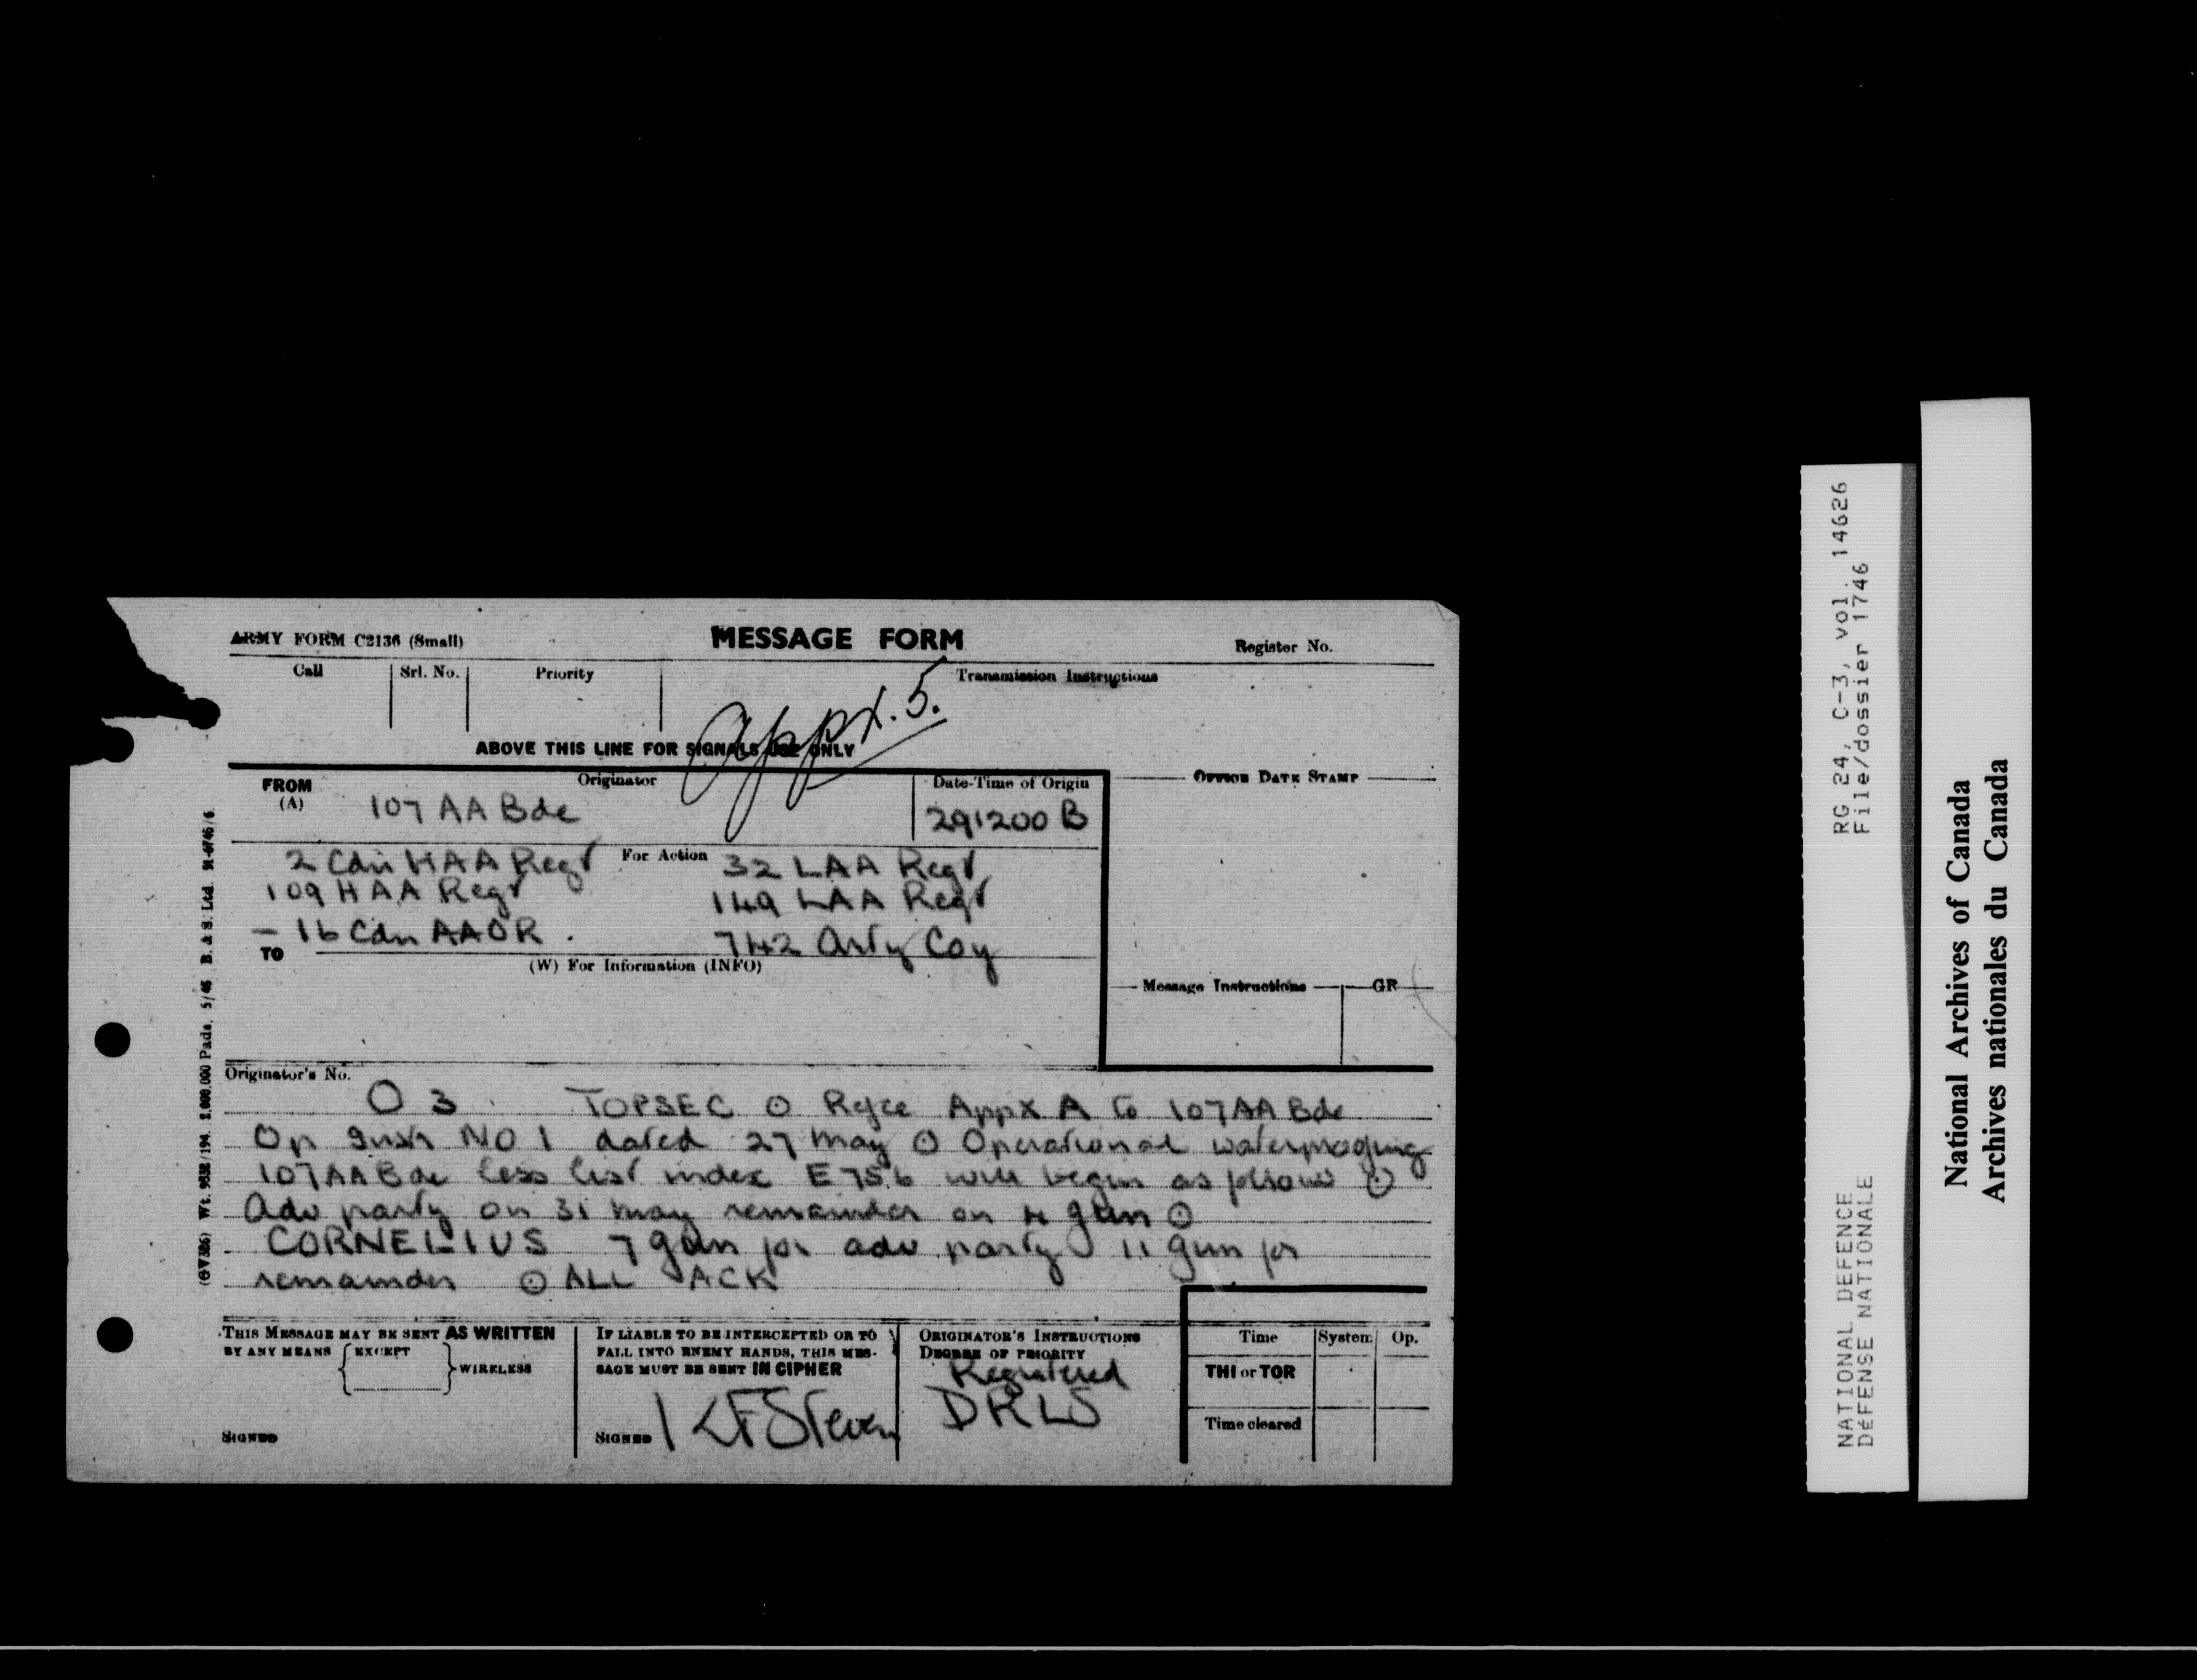 ARMY FORM C2136 (Small)
MESSAGE FORM
Register No.
Call
Srl. No.
Priority
Transmission Instructions
Appx. 5.
ABOVE THIS LINE FOR SIGNALS USE ONLY
FROM
(A)
Originator
107 AA Bde
Date-Time of Origin
291200 B
OFFICE DATE STAMP
For Action
2 Cdn HAA Regt
32 LAA Regt
109 HAA Regt
149 LAA Regt
– 16 Cdn AAOR.
742 Arty Coy
TO
(W) For Information (INFO)
Message Instructions
GR
Originator's No.
O 3 TOPSEC ⊙ Refce Appx A to 107 AA Bde
Op Instr No 1 dated 27 May ⊙ Operational waterproofing
107 AA Bde less list index E756 will begin as follows ⊙
Adv party on 31 May remainder on 4 Jun ⊙
CORNELIUS 7 Jun for adv party 11 Jun for
remainder ⊙ ALL ACK
THIS MESSAGE MAY BE SENT AS WRITTEN
BY ANY MEANS { EXCEPT } WIRELESS
SIGNED
IF LIABLE TO BE INTERCEPTED OR TO
FALL INTO ENEMY HANDS, THIS MES-
SAGE MUST BE SENT IN CIPHER
SIGNED
ORIGINATOR'S INSTRUCTIONS
DEGREE OF PRIORITY
Registered
DRLS
Time
System
Op.
THI or TOR
Time cleared
(GV386) Wt. 9532/194. 2,000,000 Pads. 5/46 B. & S. Ltd. 51-6746/6
RG 24, C-3, vol. 14626
File/dossier 1746
NATIONAL DEFENCE
DéFENSE NATIONALE
National Archives of Canada
Archives nationales du Canada